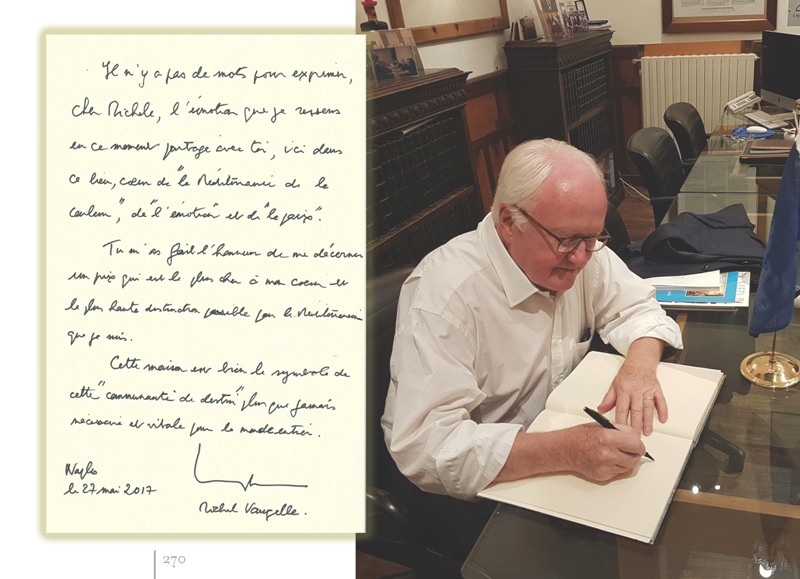 Il n'y a pas de mots pour exprimer,
cher Michele, l'émotion que je ressens
en ce moment partagé avec toi, ici dans
ce lieu, cœur de "la Méditerranée de la
couleur", de "l'émotion" et de "la paix".
Tu m'as fait l'honneur de me décerner
un prix qui est le plus cher à mon cœur et
la plus haute distinction possible pour le Méditerranéen
que je suis.
Cette maison est bien le symbole de
cette "communauté de destin" plus que jamais
nécessaire et vitale pour le monde entier.
Naples
le 27 mai 2017
Michel Vauzelle.
270